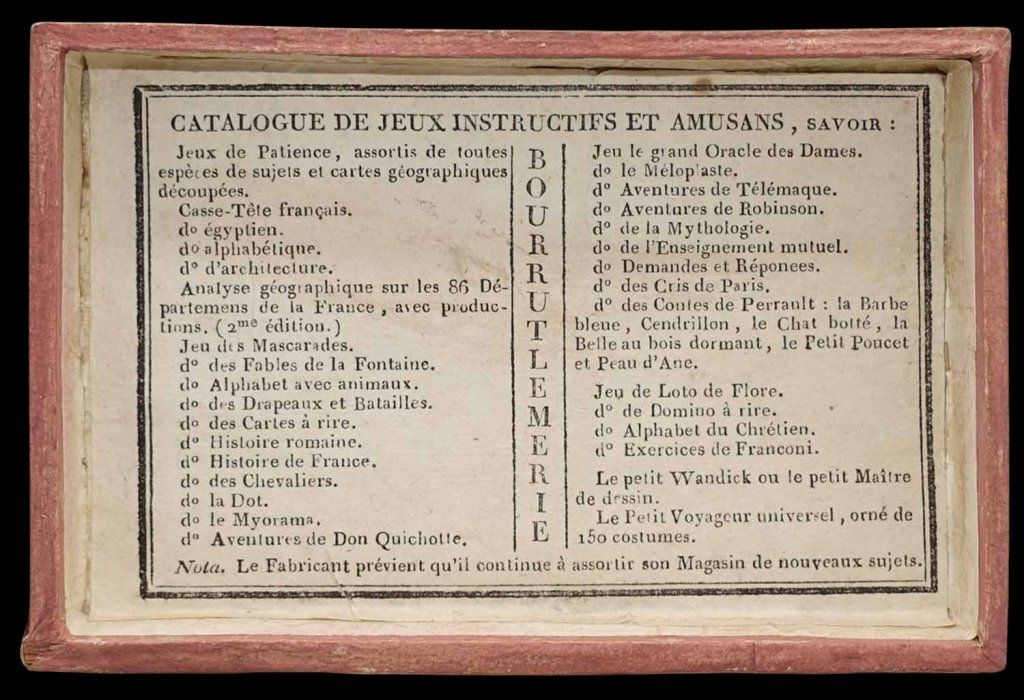 CATALOGUE DE JEUX INSTRUCTIFS ET AMUSANS, SAVOIR :
Jeux de Patience, assortis de toutes
espèces de sujets et cartes géographiques
découpées.
Casse-Tête français.
do égyptien.
do alphabétique.
do d'architecture.
Analyse géographique sur les 86 Dé-
partemens de la France, avec produc-
tions. (2me édition.)
Jeu des Mascarades.
do des Fables de la Fontaine.
do Alphabet avec animaux.
do des Drapeaux et Batailles.
do des Cartes à rire.
do Histoire romaine.
do Histoire de France.
do des Chevaliers.
do la Dot.
do le Myorama.
do Aventures de Don Quichotte.
BOURRUTLEMERIE
Jeu le grand Oracle des Dames.
do le Méloplaste.
do Aventures de Télémaque.
do Aventures de Robinson.
do de la Mythologie.
do de l'Enseignement mutuel.
do Demandes et Réponees.
do des Cris de Paris.
do des Contes de Perrault : la Barbe
bleue, Cendrillon, le Chat botté, la
Belle au bois dormant, le Petit Poucet
et Peau d'Ane.
Jeu de Loto de Flore.
do de Domino à rire.
do Alphabet du Chrétien.
do Exercices de Franconi.
Le petit Wandick ou le petit Maître
de dessin.
Le Petit Voyageur universel, orné de
150 costumes.
Nota. Le Fabricant prévient qu'il continue à assortir son Magasin de nouveaux sujets.